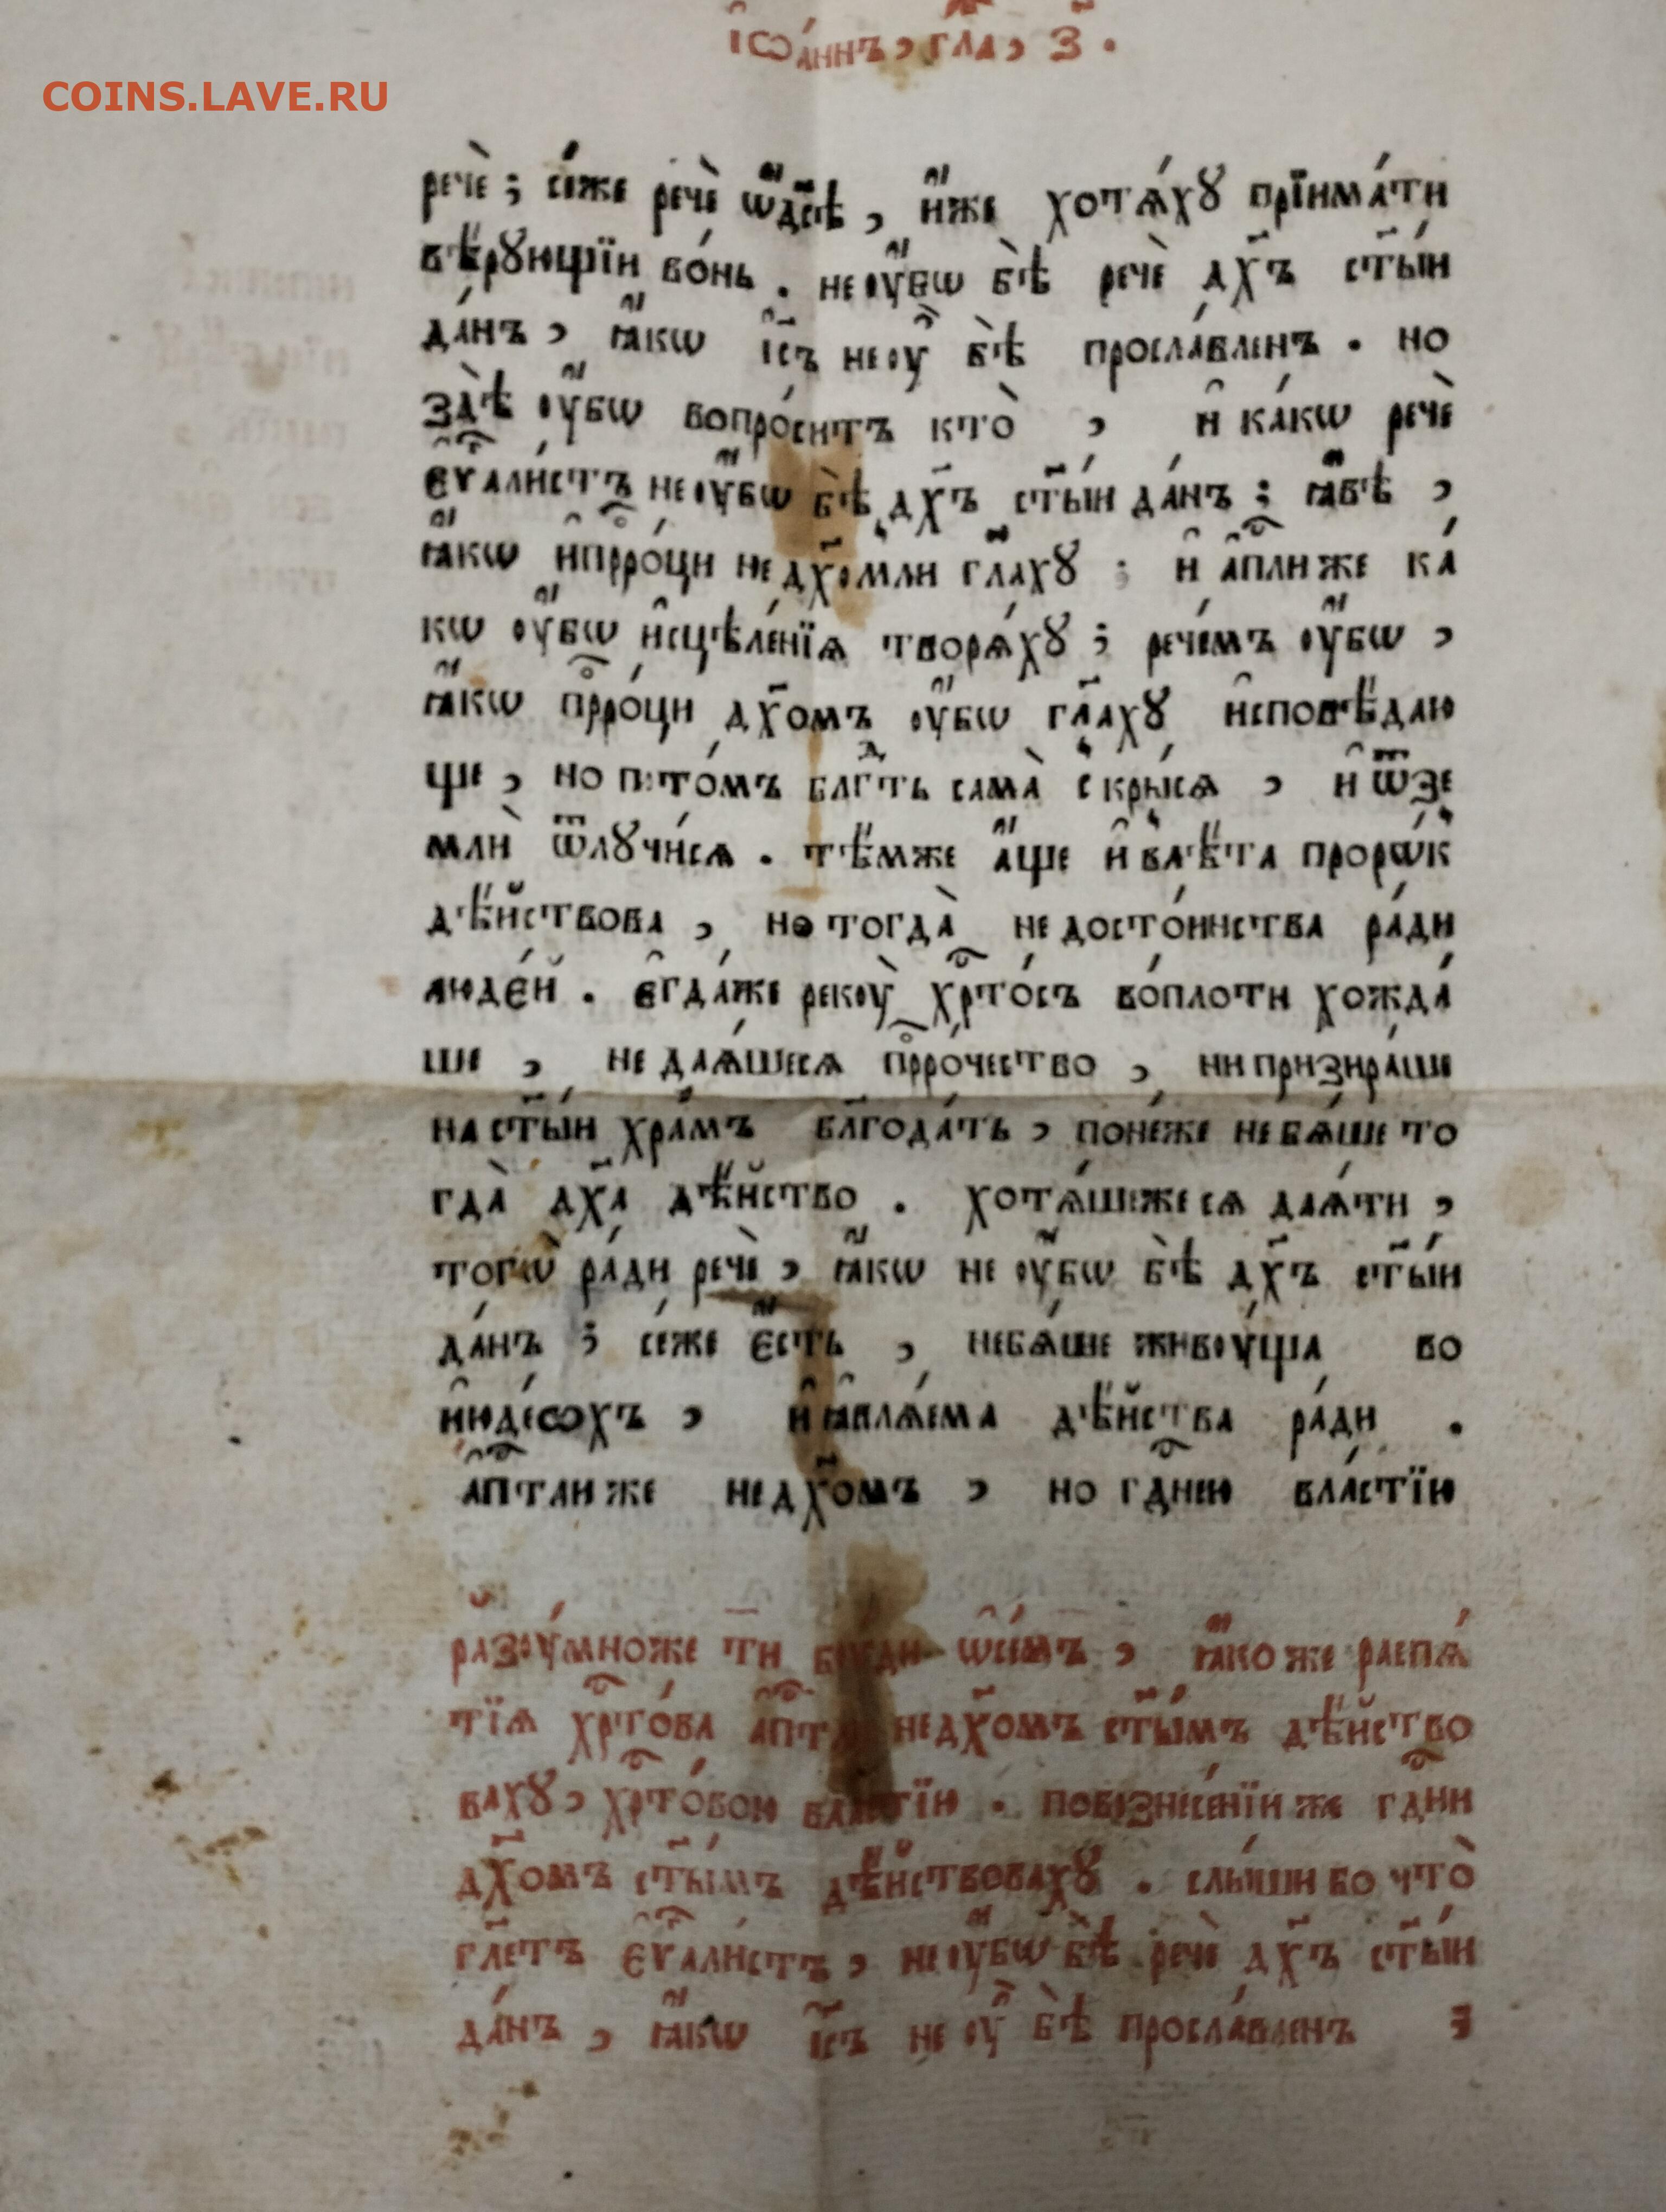 і҆ѡа́ннъ, гл҃а, з҃ .
COINS.LAVE.RU
речѐ ; се́же речѐ ѡ҆дс҃ѣ , и҆́же хотѧ́хꙋ прїима́ти
вѣ́рꙋющїи во́нь . не оу҆́бѡ бѣ̀ речѐ дх҃ъ ст҃ы́и
да́нъ , ꙗ҆́кѡ і҆с҃ъ не оу҆̀ бѣ̀ просла́вленъ . но
здѣ̀ оу҆́бѡ вопро́ситъ кто̀ , и҆ ка́кѡ речѐ
є҆ѵ҃али́стъ не оу҆́бѡ бѣ̀ дх҃ъ ст҃ы́и да́нъ ; ꙗ҆́вѣ ,
ꙗ҆́кѡ и҆ прⷪ҇ро́ци не дх҃омли гл҃аху : и҆ а҆пⷭ҇ли же ка́
кѡ оу҆́бѡ и҆сцѣле́нїѧ творѧ́хꙋ ; рече́мъ оу҆́бѡ ,
ꙗ҆́кѡ прⷪ҇ро́ци дх҃омъ оу҆́бѡ гл҃ахꙋ и҆сповѣ́даю
ще , но пото́мъ блгⷣть сама̀ скры́сѧ , и҆ ѿзе
млѝ ѿлꙋчи́сѧ . тѣ́мже а҆́ще и҆ в л҃ѣ́та прорѡ́к
дѣ́йствова , но тогда̀ не досто́инства ра́ди
люде́й . є҆гда́же рекоу̀ хрⷭ҇то́съ во́плоти хожда́
ше , не даѧ́шесѧ прⷪ҇ро́чество , ни призира́ше
на ст҃ы́и хра́мъ бл҃года́ть , поне́же не бѧ́ше то
гда̀ дх҃а дѣ́йство . хотѧ́шежесѧ даѧ́ти ,
тогѡ̀ ра́ди речѐ , ꙗ҆́кѡ не оу҆́бѡ бѣ̀ дх҃ъ ст҃ы́и
да́нъ ; се́же є҆́сть , не бѧ́ше живоу́ща во
и҆юде́ѡхъ , и҆ ꙗ҆влѧ́ема дѣ́йства ра́ди .
а҆пⷭ҇тли же не дх҃омъ , но гдⷭ҇нею вла́стїю
разоу́мно же ти бꙋди ѡ҆се́мъ , ꙗ҆́ко же распѧ́
тїѧ хрⷭ҇то́ва а҆пⷭ҇тли не дх҃омъ ст҃ы́мъ дѣ́йство
вахꙋ , хрⷭ҇то́вою вла́стїю . по вознесе́нїи же гдⷭ҇ни
дх҃омъ ст҃ы́мъ дѣ́йствовахꙋ . слы́ши бо что̀
гл҃етъ є҆ѵ҃али́стъ , не оу҆́бѡ бѣ̀ речѐ дх҃ъ ст҃ы́и
да́нъ , ꙗ҆́кѡ і҆с҃ъ не оу҆̀ бѣ̀ просла́вленъ